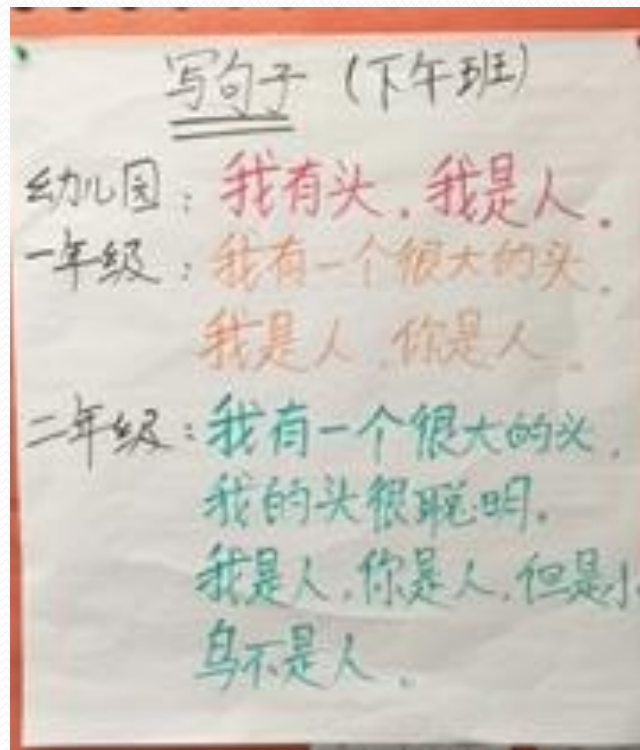 写句子（下午班）
幼儿园：我有头。我是人。
一年级：我有一个很大的头。
我是人，你是人。
二年级：我有一个很大的头，
我的头很聪明。
我是人，你是人，但是小
鸟不是人。